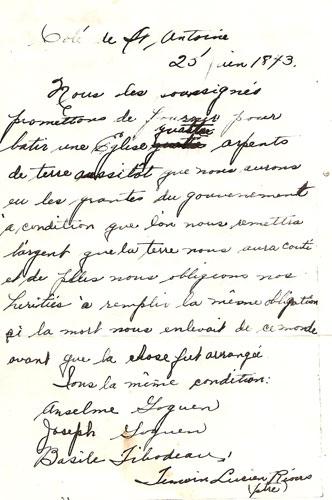 Colé de St, Antoine
25 juin 1873.
Nous les soussignés
promettons de fournir pour
batir une Eglise quattre arpents
de terre aussitot que nous aurons
eu les grantes du gouvenement
à condition que l'on nous remettra
l'argent que la terre nous aura couté
et de plus nous obligeons nos
herités à remplir la même obligation
si la mort nous enlevait de ce monde
avant que la chose fut arrangée
Sous la même condition:
Anselme Goguen
Joseph Goguen
Basile Tibodeau
Temoin Lucien Rious